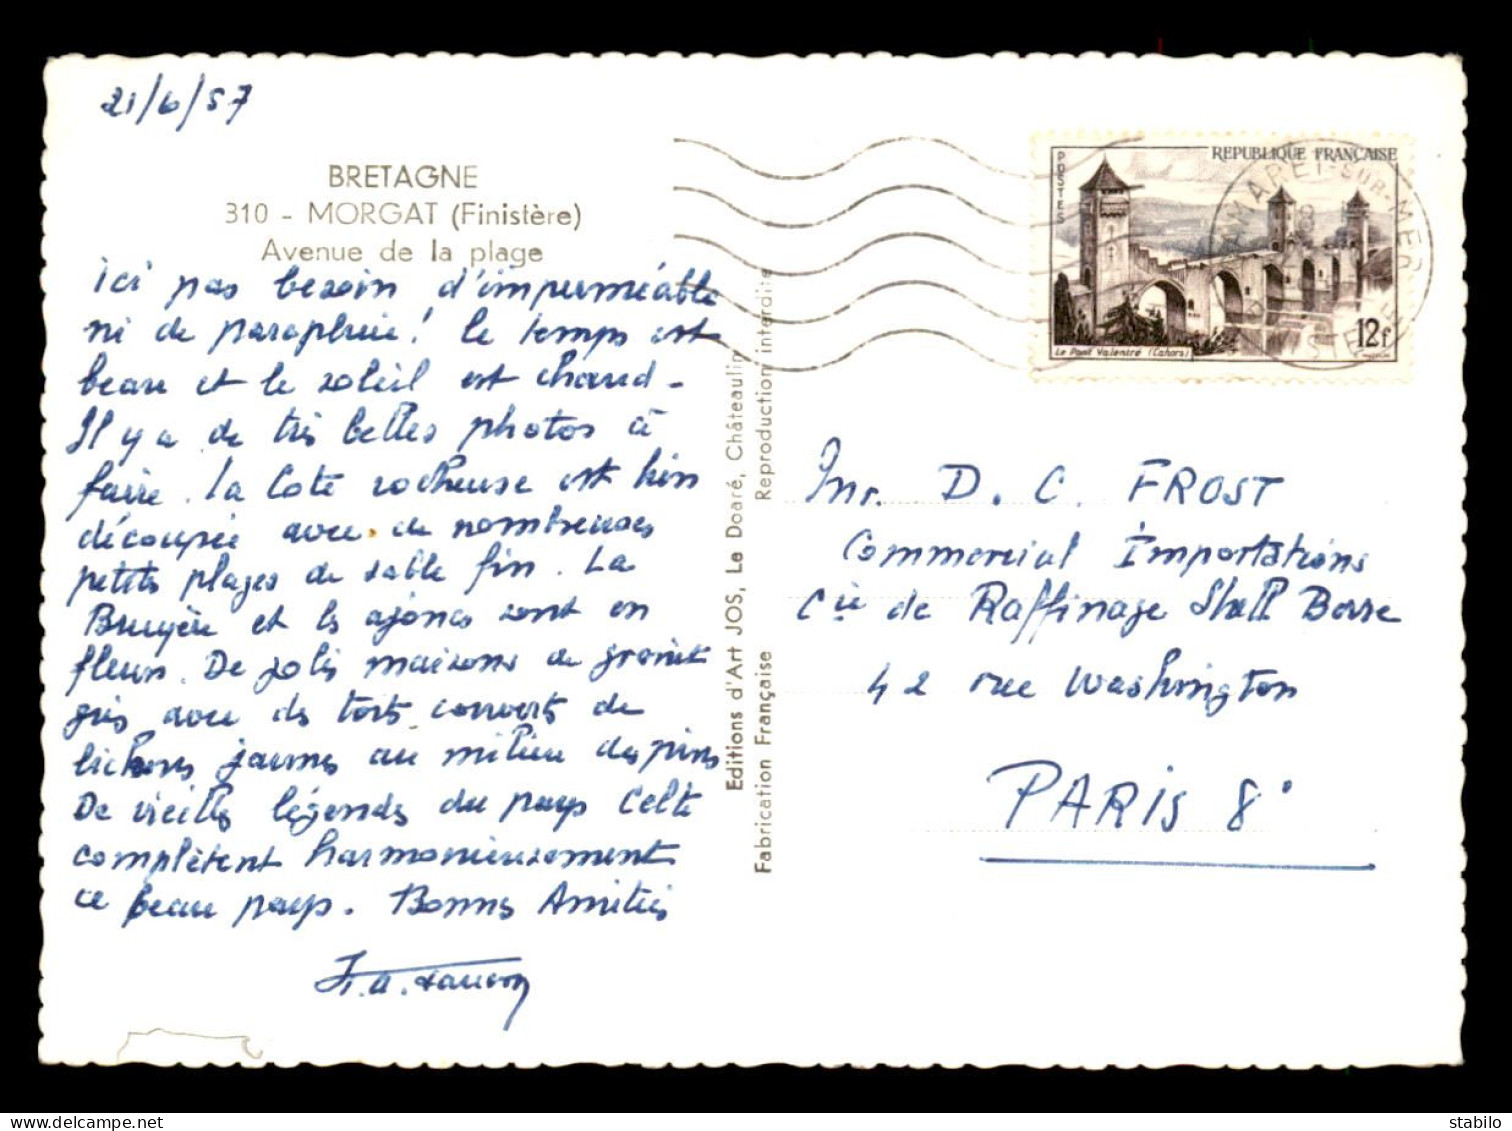 21/6/57
BRETAGNE
310 - MORGAT (Finistère)
Avenue de la plage
Ici pas besoin d'imperméable
ni de parapluie! le temps est
beau et le soleil est chaud -
Il y a de très belles photos à
faire. La Côte rocheuse est bien
découpée avec de nombreuses
petites plages de sable fin. La
Bruyère et les ajoncs sont en
fleurs. De jolis maisons de granit
gris avec des toits couverts de
lichens jaunes au milieu des pins
De vieilles légendes du pays Celte
complètent harmonieusement
ce beau pays. Bonnes Amitiés
Editions d'Art JOS, Le Doaré, Châteaulin
Fabrication Française
Reproduction interdite
POSTES
REPUBLIQUE FRANÇAISE
Le Pont Valentré (Cahors)
12f
CAMARET-SUR-MER
FINISTERE
Mr. D. C. FROST
Commercial Importations
Cie de Raffinage Shell Berre
42 rue Washington
PARIS 8°
delcampe.net
sebulo